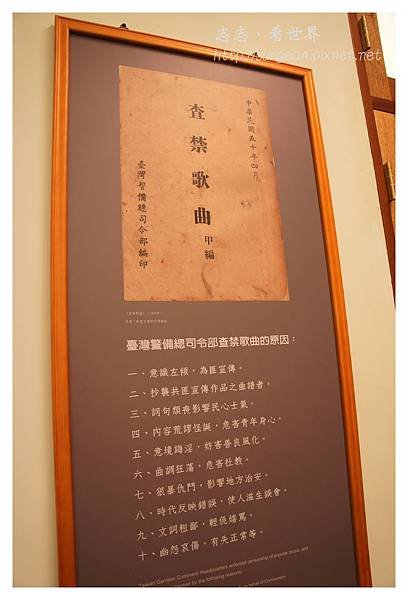 志志、看世界
http://surgeon.pixnet.net
中華民國五十年四月
查禁歌曲 甲編
臺灣警備總司令部編印
臺灣警備總司令部查禁歌曲的原因：
一、意識左傾，為匪宣傳。
二、抄襲共匪宣傳作品之曲譜者。
三、詞句頹喪影響民心士氣。
四、內容荒謬怪誕，危害青年身心。
五、意境誨淫，妨害善良風化。
六、曲調狂蕩，危害社教。
七、狠暴仇鬥，影響地方治安。
八、時代反映錯誤，使人滋生誤會。
九、文詞粗鄙，輕佻嬉罵。
十、幽怨哀傷。有失正常等。
Taiwan Garrison Command Headquarters enforced censorship of popular music, and
banned for the following reasons: